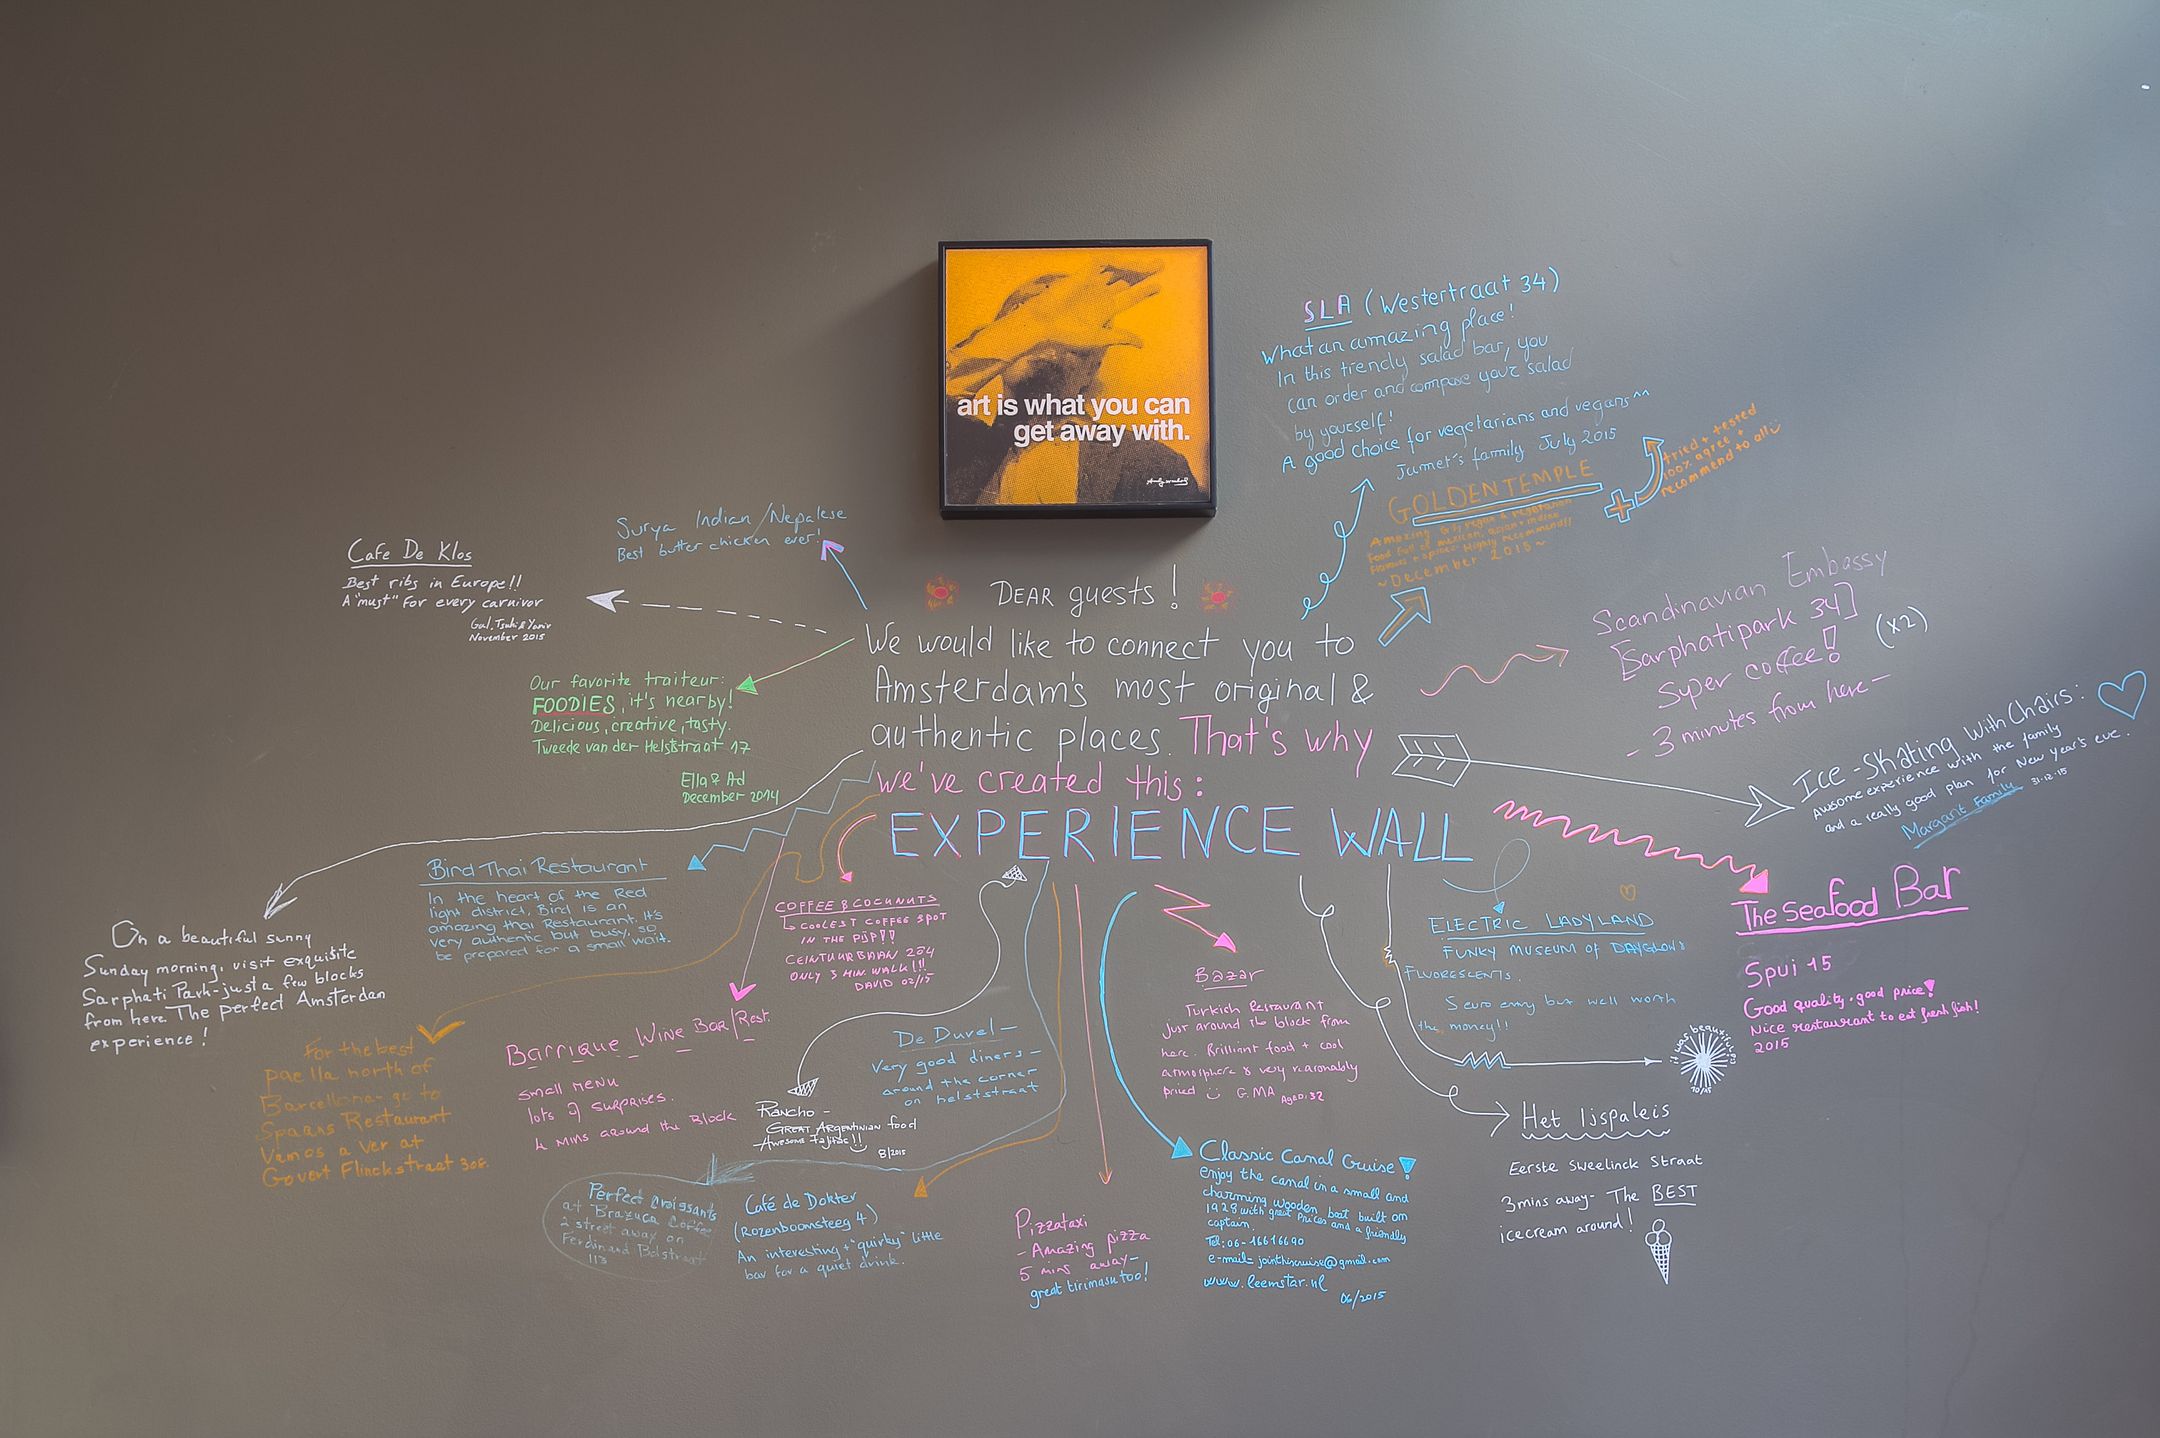 art is what you can
get away with.
SLA (Westertraat 34)
What an amazing place!
In this trendy salad bar, you
can order and compose your salad
by yourself!
A good choice for vegetarians and vegans ^^
Jumet's family July 2015
GOLDEN TEMPLE
Amazing
food full of mexican, asian + indian
flavours + spices. Highly recommend!!
~ December 2015 ~
+
tried + tested
100% agree +
recommend to all
Surya Indian/Nepalese
Best butter chicken ever!
Cafe De Klos
Best ribs in Europe!!
A "must" for every carnivor
Gal, Tsuki & Yaniv
November 2015
Our favorite traiteur:
FOODIES, it's nearby!
Delicious, creative, tasty.
Tweede van der Helststraat 17
Ella & Ad
December 2014
DEAR guests!
We would like to connect you to
Amsterdam's most original &
authentic places. That's why
we've created this:
EXPERIENCE WALL
Scandinavian Embassy
[Sarphatipark 34]
Super coffee! (x2)
- 3 minutes from here -
Ice-Skating with Chairs:
Awsome experience with the family
and a really good plan for New year's eve.
Margarit Family 31.12.15
The Seafood Bar
Spui 15
Good quality. good price!
Nice restaurant to eat fresh fish!
2015
Bird Thai Restaurant
In the heart of the Red
light district, Bird is an
amazing thai Restaurant. It's
very authentic but busy, so
be prepared for a small wait.
On a beautiful sunny
Sunday morning, visit exquisite
Sarphati Park - just a few blocks
from here. The perfect Amsterdam
experience!
For the best
paella north of
Barcellona - go to
Spaans Restaurant
Vamos a Ver at
Govert Flinckstraat 308.
COFFEE & COCUNUTS
COOLEST COFFEE SPOT
IN THE PIJP!!
CEINTUURBAAN 284
ONLY 3 MIN. WALK!!!
DAVID 02/15
Barrique Wine Bar/Rest.
small menu
lots of surprises.
4 mins around the Block
Rancho -
Great Argentinian food
Awesome Fajitas!!
8/2015
De Duvel -
very good diners -
around the corner
on helststraat
Perfect croissants
at Brazuca Coffee
2 street away on
Ferdinand Bolstraat
113
Café de Dokter
(Rozenboomsteeg 4)
An interesting + "quirky" little
bar for a quiet drink.
Pizzataxi
- Amazing pizza
5 mins away -
great tirimasu too!
Bazar
Turkish Restaurant
just around the block from
here. Brilliant food + cool
atmosphere & very reasonably
priced G.MA Aged: 32
Classic Canal Cruise!
enjoy the canal in a small and
charming wooden boat built on
1928 with great prices and a friendly
captain.
Tel: 06-16616690
e-mail= jointhiscruise@gmail.com
www.leemstar.nl
06/2015
ELECTRIC LADYLAND
FUNKY MUSEUM OF DAYGLOWS
FLUORESCENTS.
5 euro entry but well worth
the money!!
it was beautiful
10/15
Het Ijspaleis
Eerste Sweelinck Straat
3mins away - The BEST
icecream around!